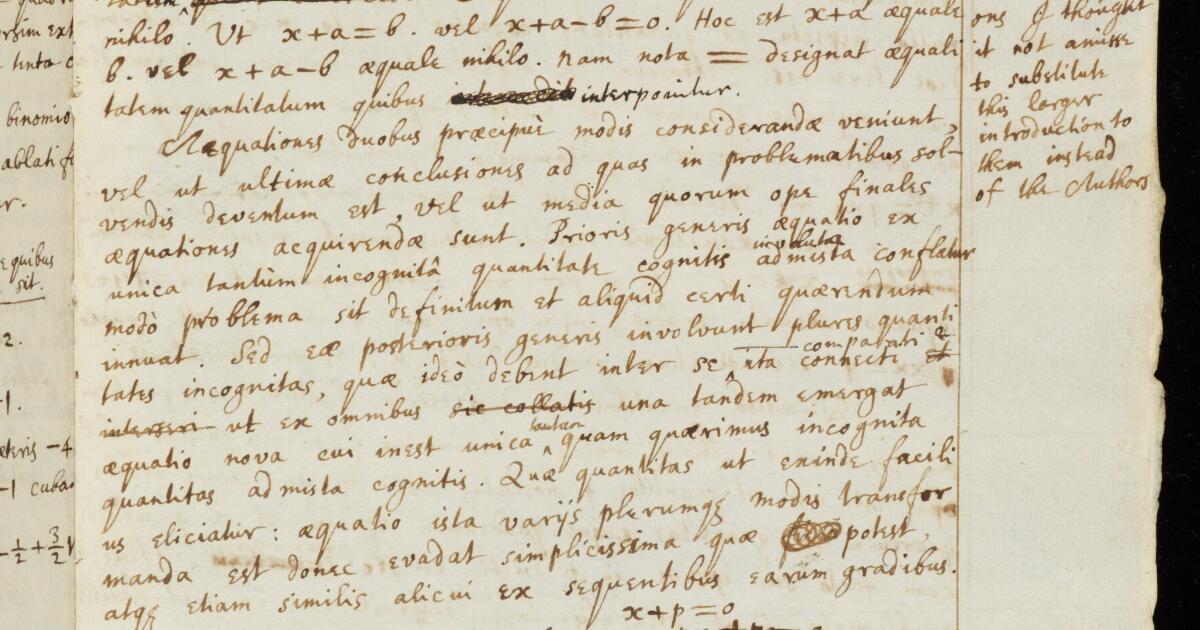 nihilo. Ut x+a=b. vel x+a−b=0. Hoc est x+a æquale
b. vel x+a−b æquale nihilo. nam nota = designat æquali
tatem quantitatum quibus interponitur.
Aequationes duobus præcipuè modis considerandæ veniunt,
vel ut ultimæ conclusiones ad quas in problematibus sol-
vendis deventum est, vel ut media quorum ope finales
æquationes acquirendæ sunt. Prioris generis æquatio ex
unica tantùm incognitâ quantitate cognitis involuta admista conflatur
modò problema sit definitum et aliquid certi quærendum
innuat. Sed eæ posterioris generis involvunt plures quanti
tates incognitas, quæ ideò debent inter se comparari & ita connecti et
interseri ut ex omnibus sic collatis una tandem emergat
æquatio nova cui inest unica tantum quam quærimus incognita
quantitas admista cognitis. Quæ quantitas ut exinde facili
us eliciatur: æquatio ista varijs plerumqꝫ modis transfor
manda est donec evadat simplicissima quæ potest,
atqꝫ etiam similis alicui ex sequentibus earum gradibus.
x+p=0
ons I thought
it not amisse
to substitute
this larger
introduction to
them instead
of the Authors
binomio
ablati
er.
e quibus
sit.
2.
-1.
æteris −4
-1 cuba
−½+3/2